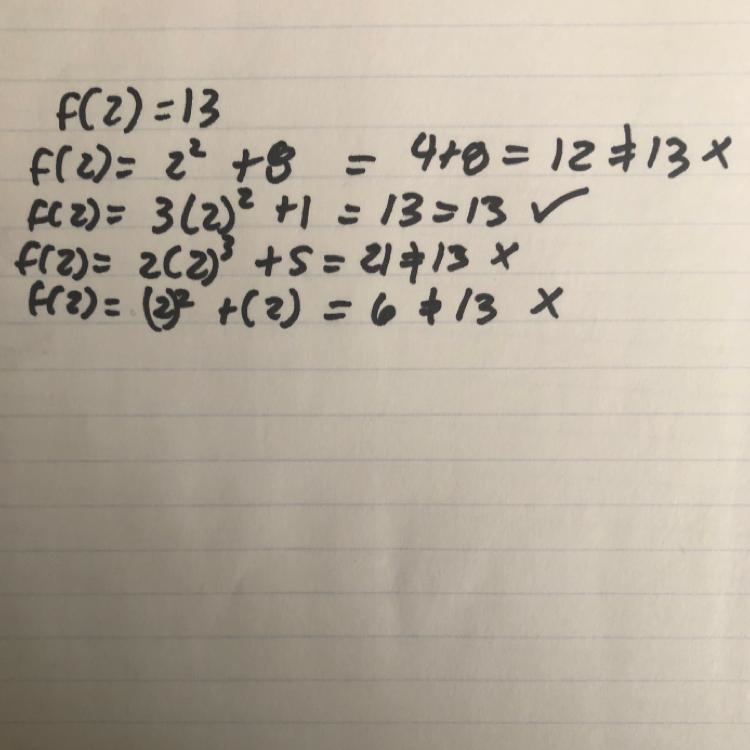 f(2)=13
f(2)= 2² +8 = 4+8 = 12 ≠ 13 ×
f(2)= 3(2)² +1 = 13 = 13 ✓
f(2)= 2(2)³ +5 = 21 ≠ 13 ×
f(2)= (2)² +(2) = 6 ≠ 13 ×